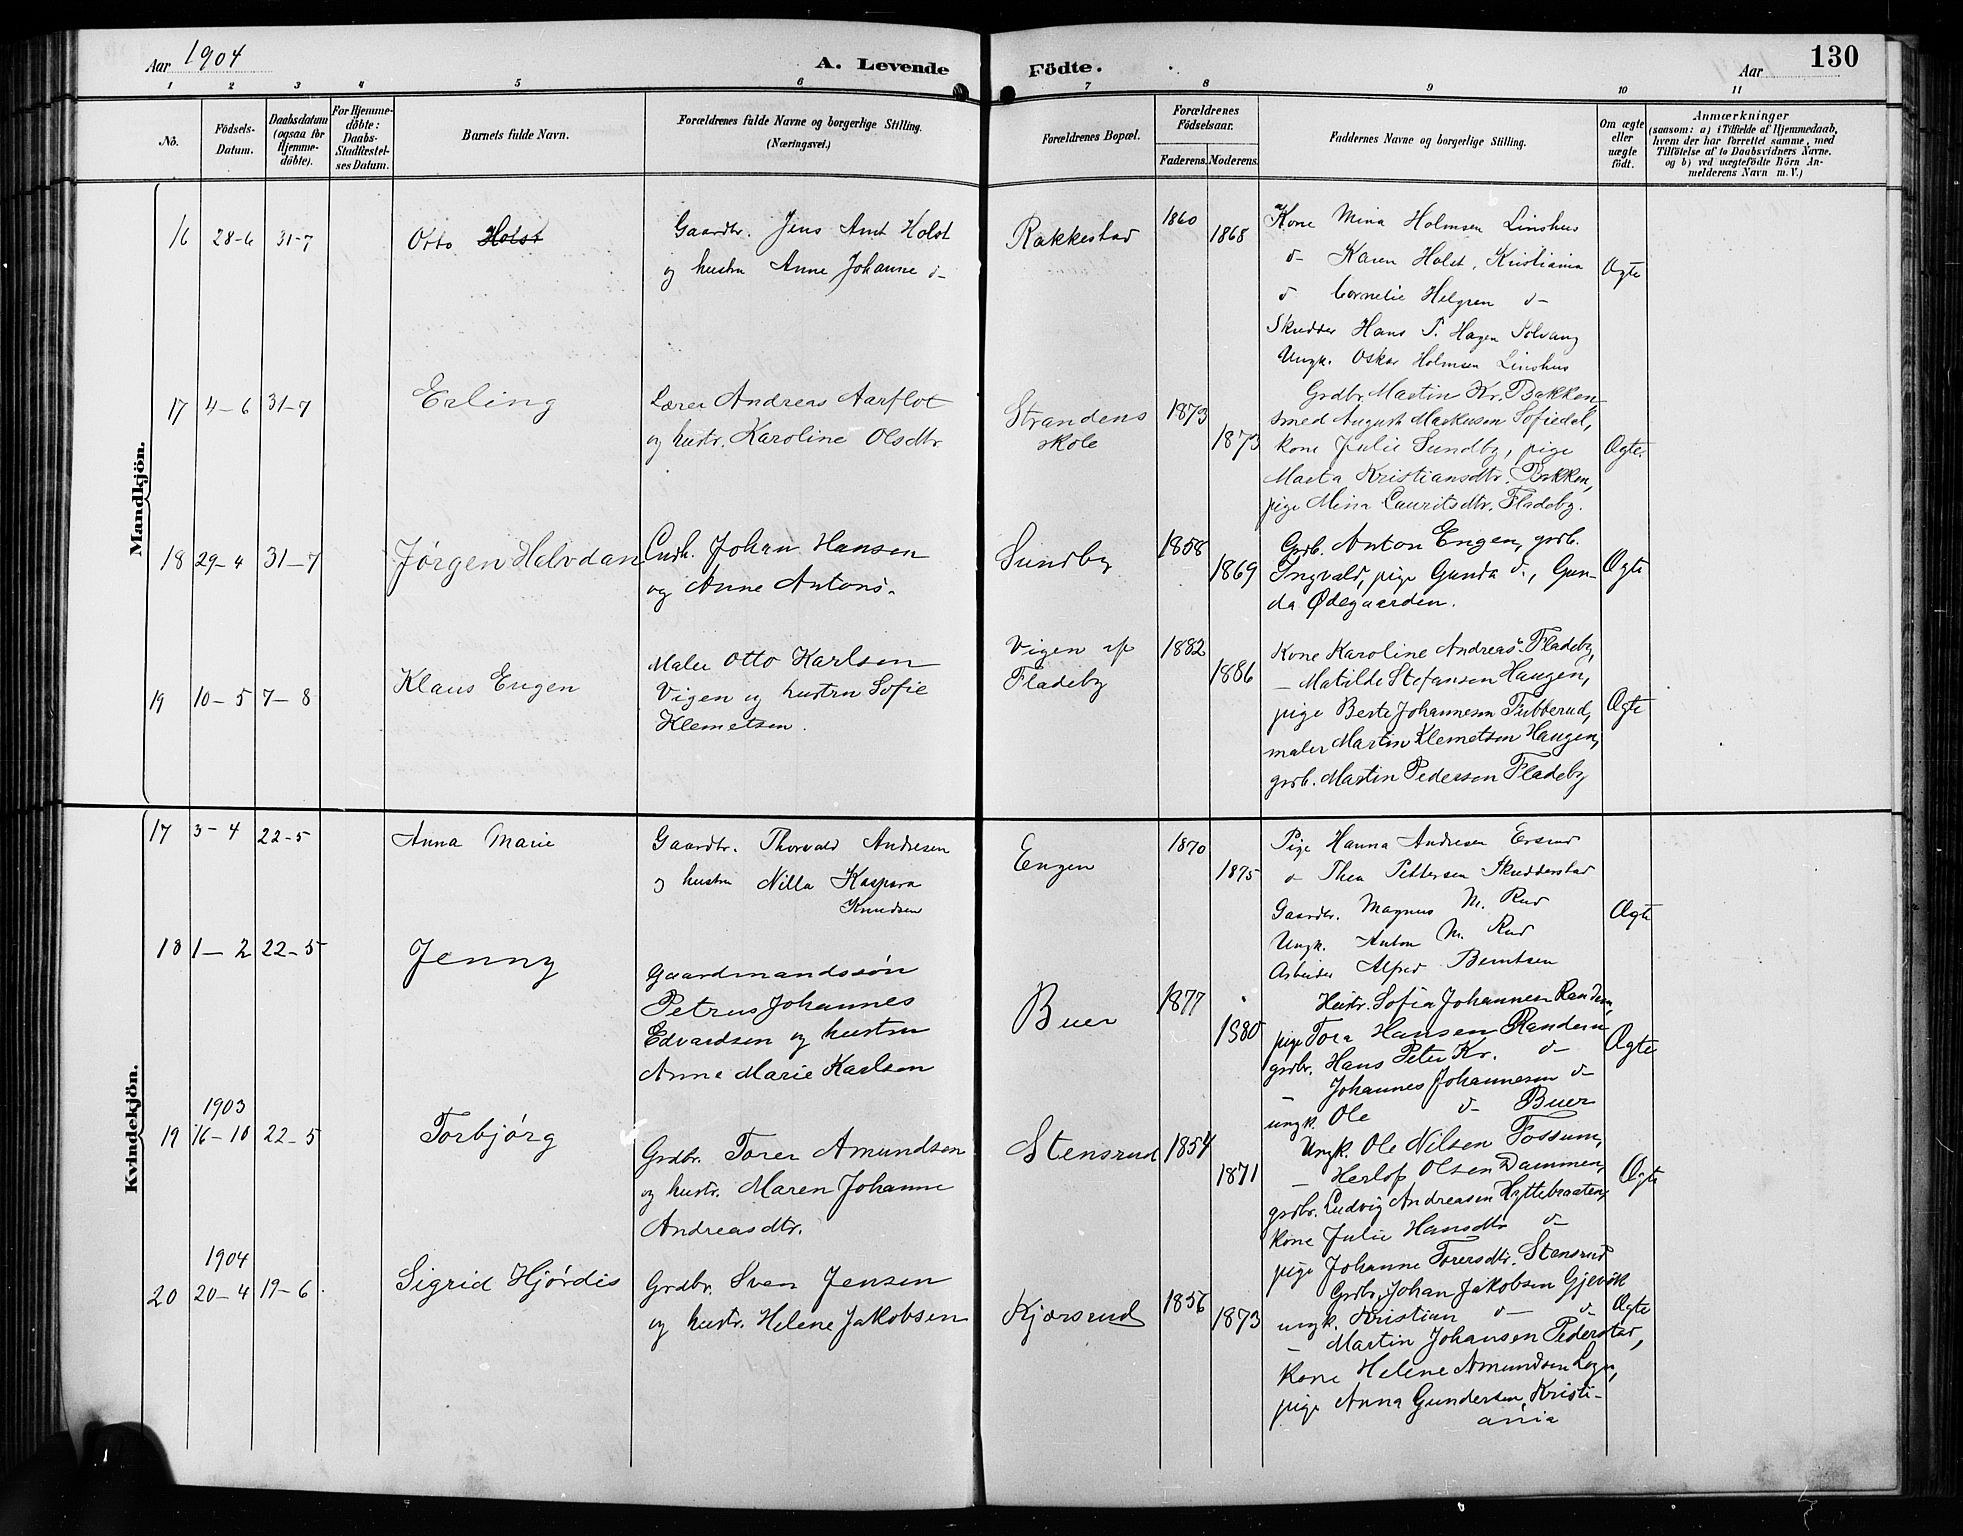 Aar 1904
A. Levende
Födte.
Aar
130
1 2 3 4 5 6 7 8 9 10 11
No.
Födsels-
Datum.
Daabsdatum
(ogsaa for
Hjemme-
döbte).
For Hjemme-
döbte:
Daabs-
Stadfæstel-
ses Datum.
Barnets fulde Navn.
Forældrenes fulde Navne og borgerlige Stilling.
(Næringsvei.)
Forældrenes Bopæl.
Forældrenes
Födselsaar.
Faderens. Moderens.
Faddernes Navne og borgerlige Stilling.
Om ægte
eller
uægte
födt.
Anmærkninger
(saasom: a) i Tilfælde af Hjemmedaab,
hvem der har forrettet samme, med
Tilföielse af to Daabsvidners Navne.
og b) ved uægtefödte Börn An-
melderens Navn m. V.)
Mandkjön.
16 28-6 31-7
Otto Holst
Gaardbr. Jens Amt Holst
og hustru Anne Johanne d-
Rakkestad
1860
1868
Kone Mina Holmsen Linshus
d- Karen Holst, Kristiania
d Cornelie Helgren d-
Skrædder Hans P. Hagen Solvang
Ungk. Oskar Holmsen Linshus
Ægte
17 4-6 31-7
Erling
Lærer Andreas Aarflot
og hustr. Karoline Olsdtr
Strandens
skole
1873
1873
Grdbr. Martin Kr. Bakken
smed August Markusen Sofiedal,
kone Julie Sundby, pige
Marta Kristiansdtr. Bakken,
pige Mina Lauritsdtr. Fladeby.
Ægte.
18 29-4 31-7
Jørgen Halvdan
Lndh. Johan Hansen
og Anne Antons.
Sundby
1858
1869
Grdb. Anton Engen, grdb.
Ingvald, pige Gunda d., Gun-
da Ødegaarden.
Ægte
19 10-5 7-8
Klaus Eugen
Maler Otto Karlsen
Vigen og hustru Sofie
Klemetsen.
Vigen u/
Fladeby
1882
1886
Kone Karoline Andreas. Fladeby,
- Matilde Stefansen Haugen,
pige Berte Johannesen Tubberud,
maler Martin Klemetsen Haugen,
grdb. Martin Pedersen Fladeby
Ægte
Kvindekjön.
17 3-4 22-5
Anna Marie
Gaardbr. Thorvald Andresen
og hustru Nilla Kaspara
Knudsen
Engen
1870
1875
Pige Hanna Andresen Ersrud
d Thea Pettersen Skudderstad
Gaardbr. Magnus M. Rud
Ungk. Anton M. Rud
Arbeider Alfred Berntsen
Ægte
18 1-2 22-5
Jenny
Gaardmandssøn
Petrus Johannes
Edvardsen og hustru
Anna Marie Karlsen
Buer
1877
1880
Hustr. Sofia Johannesen Randem,
pige Tora Hansen Randem
grdbr. Hans Peter Kr. d-
- Johannes Johannesen d-
ungk. Ole d- Buer
Ægte
1903
19 16-10 22-5
Torbjørg
Grdbr. Torer Amundsen
og hustr. Maren Johanne
Andreasdtr.
Stensrud
1854
1871
Ungk. Ole Nilsen Fossum,
- Herlof Olsen Dammen,
grdbr. Ludvig Andreasen Hyttebraaten,
kone Julie Hansdtr d-
pige Johanne Torersdtr. Stensrud
Ægte
1904
20 20-4 19-6.
Sigrid Hjørdis
Grdbr. Sven Jensen
og hustr. Helene Jakobsen
Kjærsrud
1856
1873
Grdbr. Johan Jakobsen Gjevik
ungk. Kristian d- d-
- Martin Johansen Pederstad,
Kone Helene Amundsen
pige Anna Gundersen, Kristi-
ania
Ægte